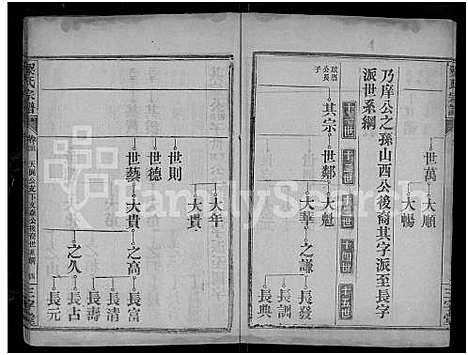 世萬
大順
大暢
乃庠公之孫山西公後裔其字派至長字
派世系綱
十一世
十二世
十三世
十四世
十五世
公長
子
其宗
世鄰
大魁
大華
之謙
長發
長訓
長典
世則
大年
大貴
世德
世藝
大貴
之高
長富
長清
長壽
之久
長占
長元
氏宗譜
FamilySearch